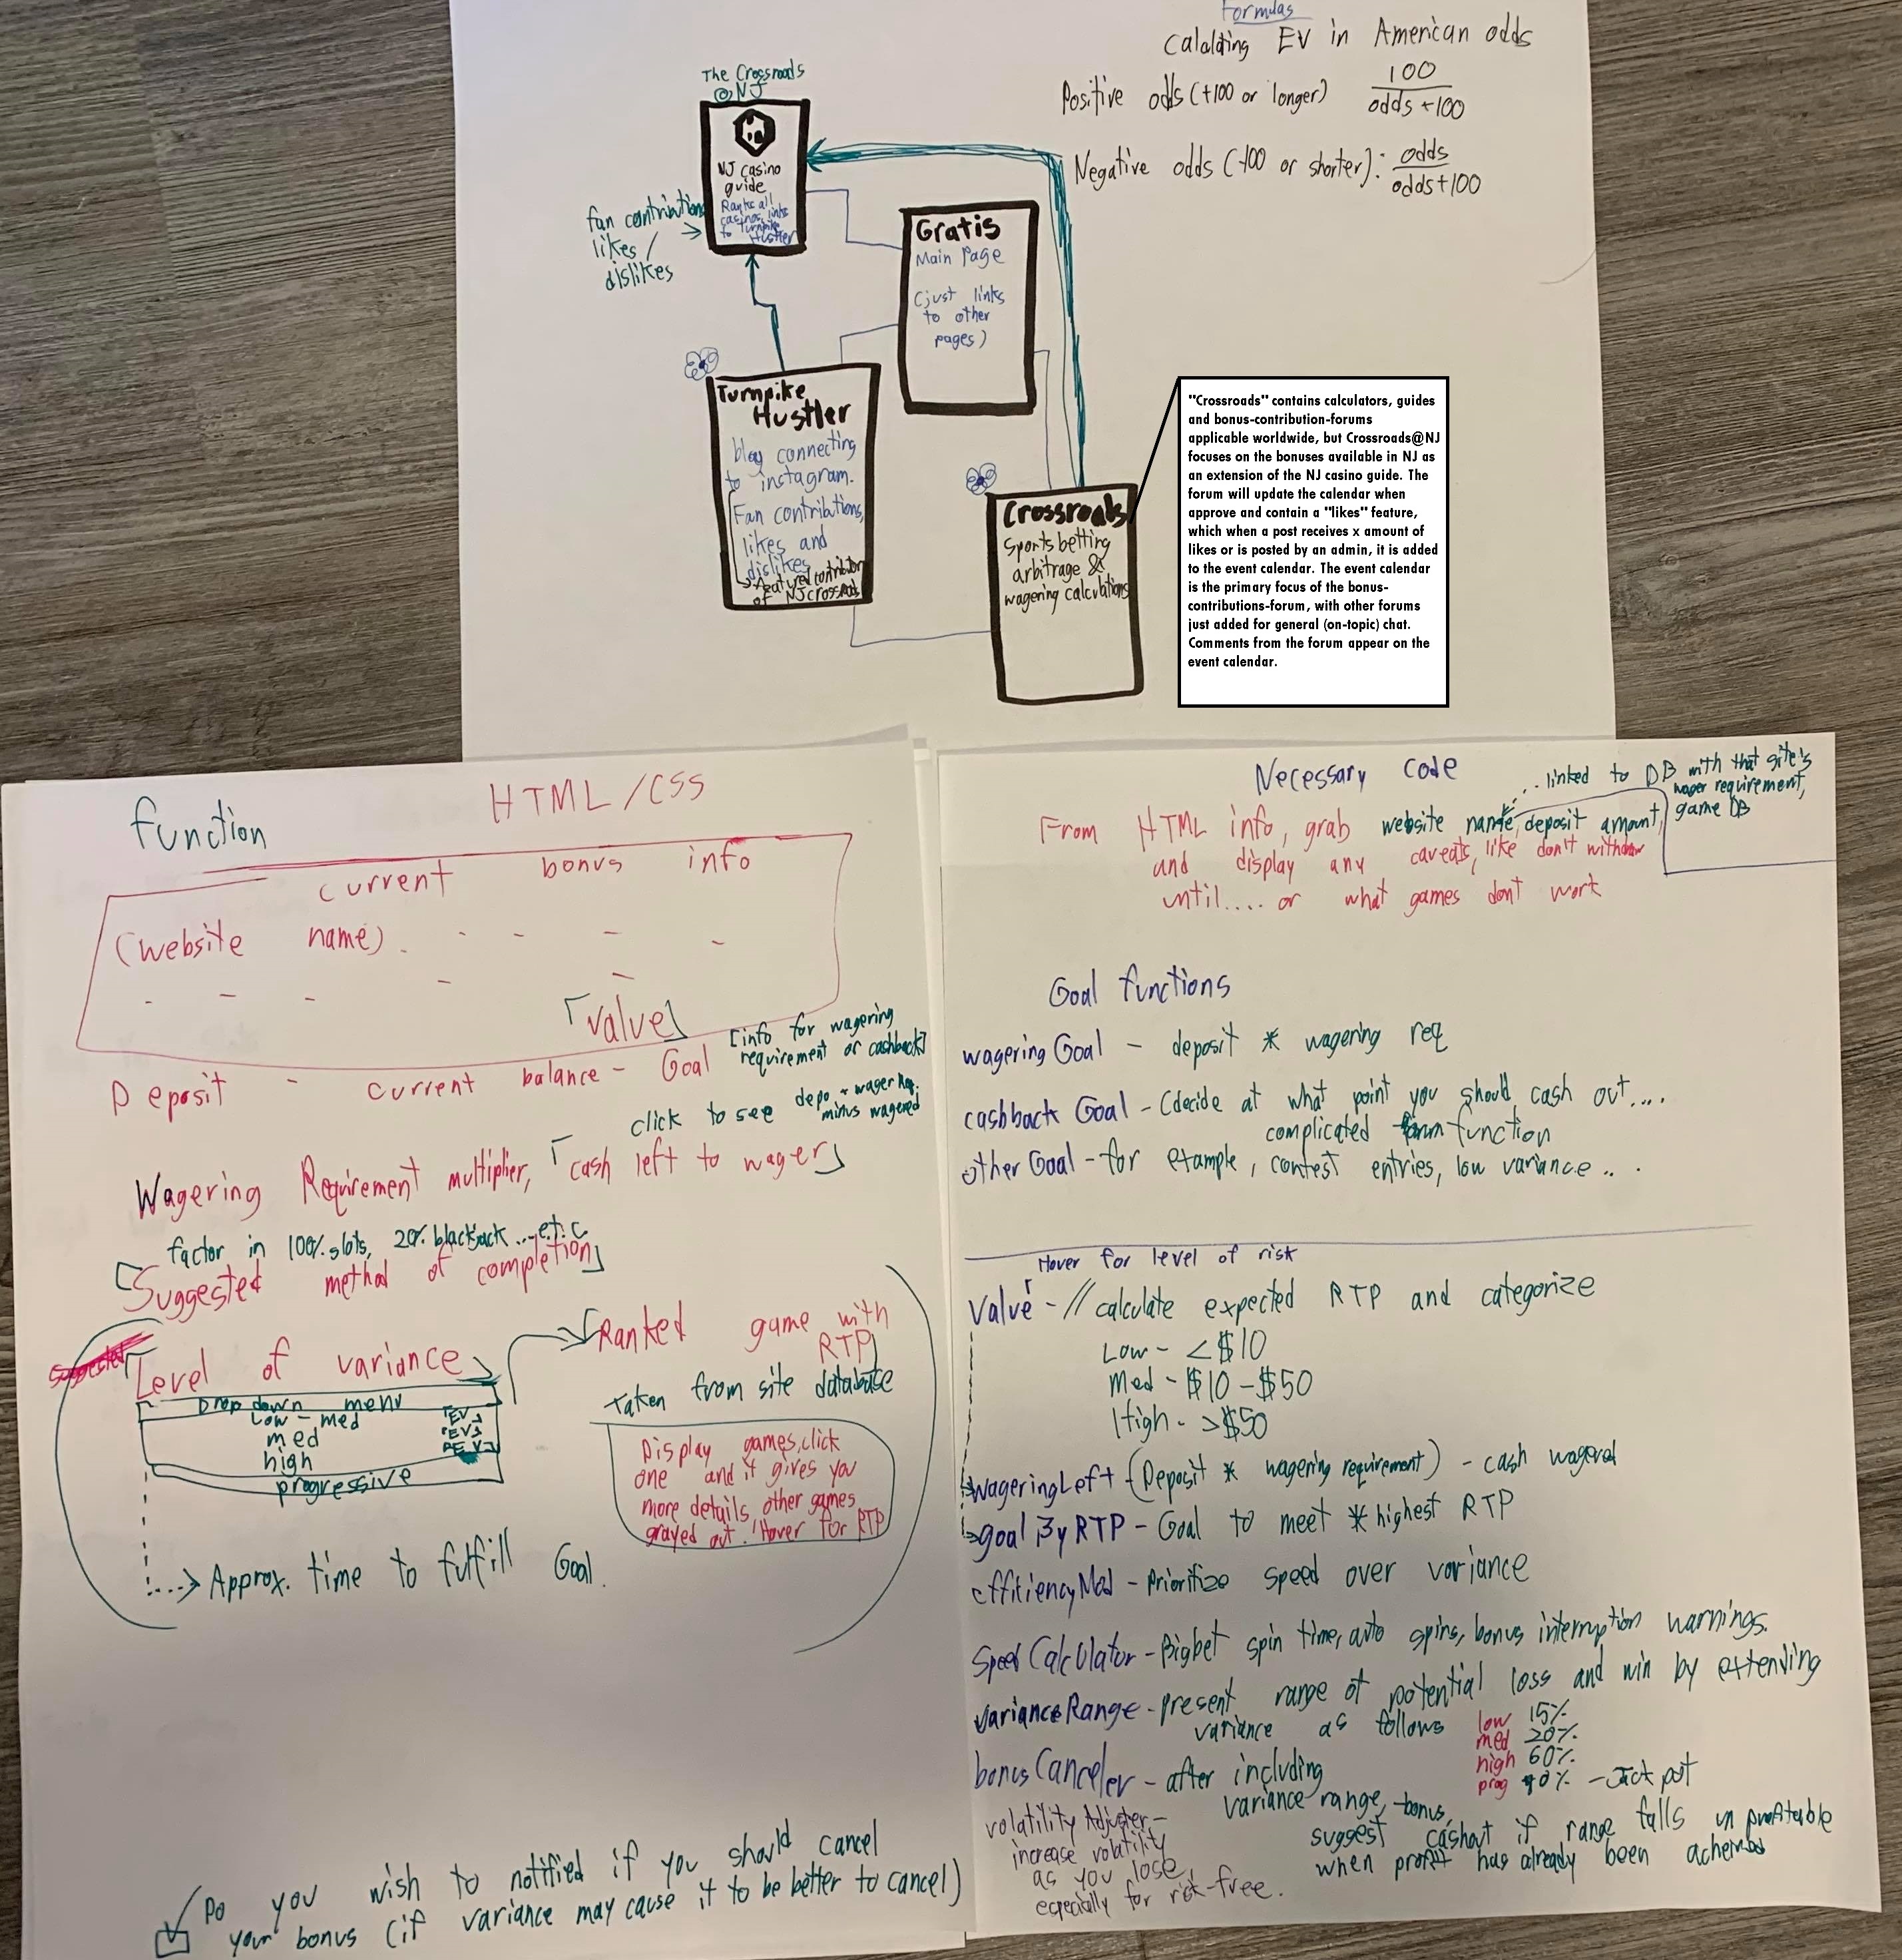 Formulas
Calalating EV in American odds
Positive odds (+100 or longer) 100
odds +100
Negative odds (-100 or shorter): odds
odds+100
The Crossroads
@NJ
NJ casino
guide
Ranks all
casinos, links
to Turnpike
Hustler
fan contributions
likes /
dislikes
Gratis
Main Page
(just links
to other
pages)
Turnpike
Hustler
blog connecting
to instagram.
Fan contributions,
likes and
dislikes
featured contributor
of NJ crossroads
Crossroads
Sports betting
arbitrage &
wagering calculations
"Crossroads" contains calculators, guides
and bonus-contribution-forums
applicable worldwide, but Crossroads@NJ
focuses on the bonuses available in NJ as
an extension of the NJ casino guide. The
forum will update the calendar when
approve and contain a "likes" feature,
which when a post receives x amount of
likes or is posted by an admin, it is added
to the event calendar. The event calendar
is the primary focus of the bonus-
contributions-forum, with other forums
just added for general (on-topic) chat.
Comments from the forum appear on the
event calendar.
function
HTML/CSS
current bonus info
(website name)
[value]
Deposit - current balance - Goal [info for wagering
requirement or cashback]
click to see depo * wager Req.
minus wagered
Wagering Requirement multiplier, [cash left to wager]
factor in 100% slots, 20% blackjack ...etc.
[Suggested method of completion]
Suggested
[Level of variance]
Drop down menu
low - med [EV]
med [EV]
high [EV]
progressive
[Ranked game with
RTP]
Taken from site database
Display games, click
one and it gives you
more details, other games
grayed out. Hover for RTP
Approx. time to fulfill Goal.
Do you wish to notified if you should cancel
your bonus (if variance may cause it to be better to cancel)
Necessary code
... linked to DB with that site's
wager requirement,
game DB
From HTML info, grab website name, deposit amount,
and display any caveats, like don't withdraw
until.... or what games don't work
Goal functions
wagering Goal - deposit * wagering req
cashback Goal - (decide at what point you should cash out....
complicated function
other Goal - for example, contest entries, low variance...
Hover for level of risk
Value - // calculate expected RTP and categorize
Low - <$10
Med - $10 - $50
High - >$50
wageringLeft - (Deposit * wagering requirement) - cash wagered
goal By RTP - Goal to meet * highest RTP
efficiencyMod - Prioritize speed over variance
Speed Calculator - Bigbet spin time, auto spins, bonus interruption warnings.
varianceRange - present range of potential loss and win by extending
variance as follows
low 15%
med 20%
high 60%
prog 90% - Jackpot
bonus Canceler - after including
variance range, bonus,
suggest cashout if range falls unprofitable
when profit has already been acheived
volatility Adjuster -
increase volatility
as you lose,
especially for risk-free.